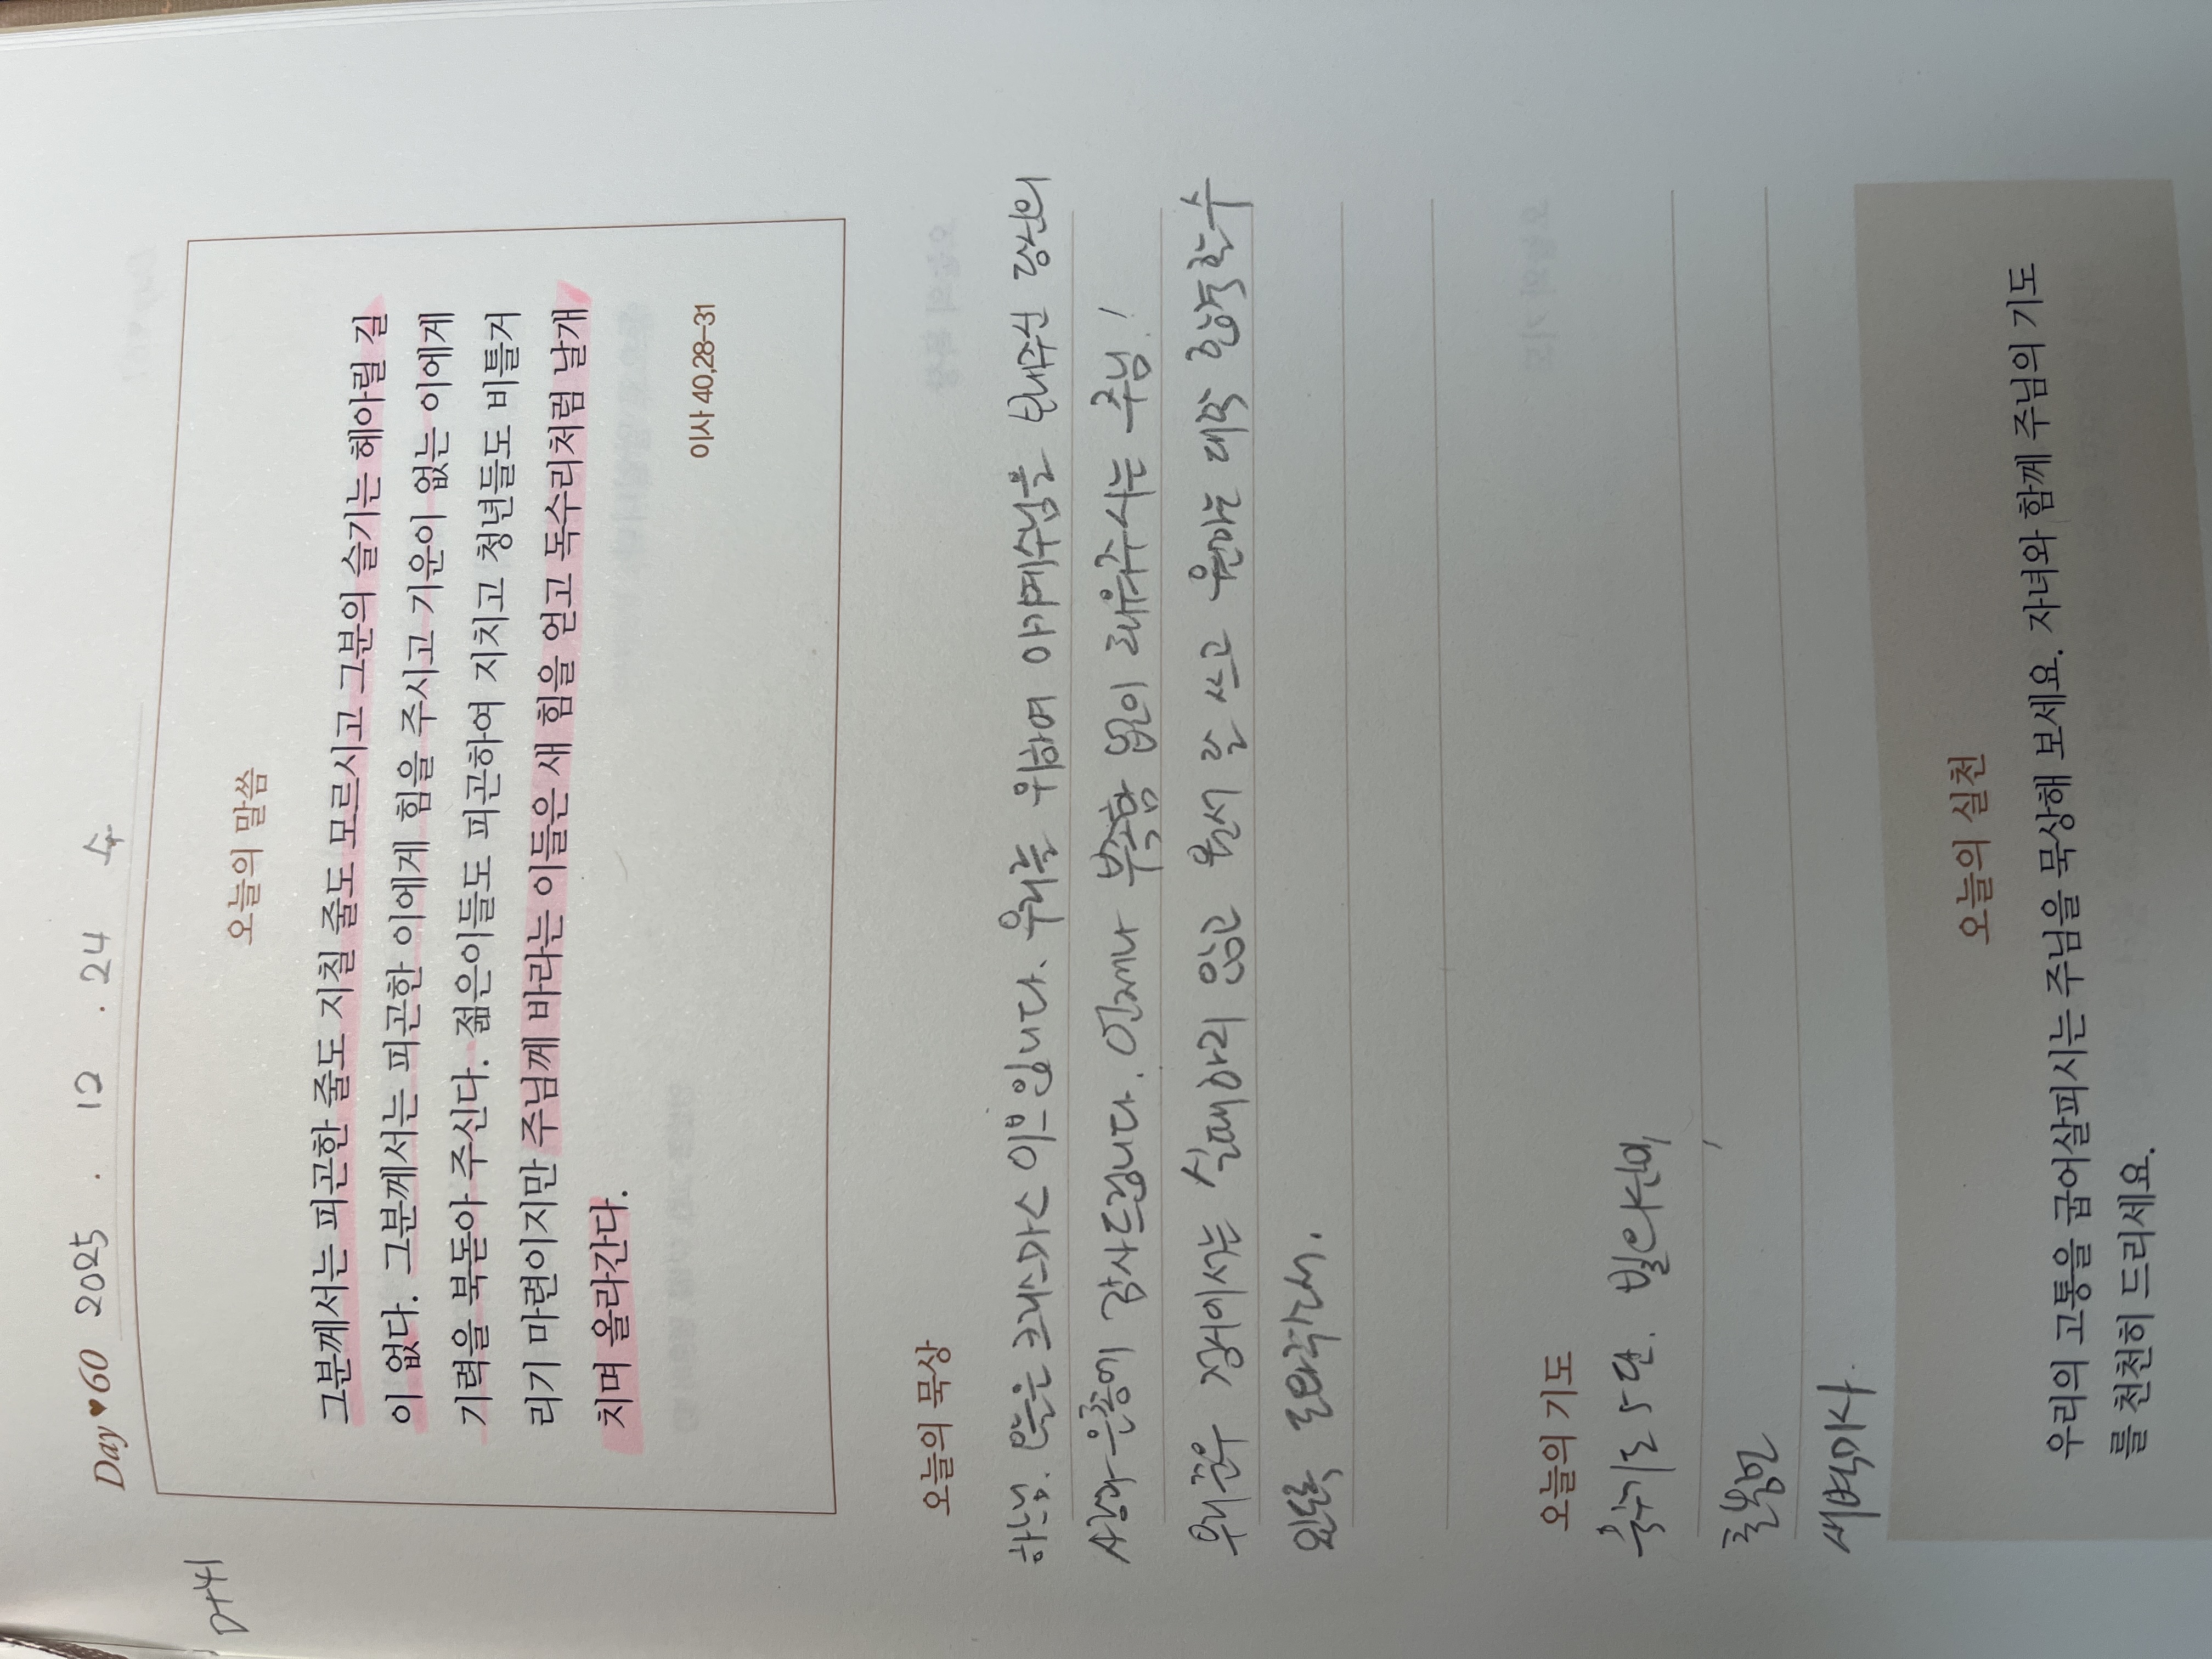 D+41
Day♥60 2025 . 12 . 24 수
오늘의 말씀
그분께서는 피곤한 줄도 지칠 줄도 모르시고 그분의 슬기는 헤아릴 길
이 없다. 그분께서는 피곤한 이에게 힘을 주시고 기운이 없는 이에게
기력을 북돋아 주신다. 젊은이들도 피곤하여 지치고 청년들도 비틀거
리기 마련이지만 주님께 바라는 이들은 새 힘을 얻고 독수리처럼 날개
치며 올라간다.
이사 40,28–31
오늘의 묵상
하느님. 오늘은 크리스마스 이브입니다. 우리를 위하여 아기예수님을 보내주신 당신의
사랑과 은총에 감사드립니다. 언제나 부족함 없이 채워주시는 주님!
우리 준우 정시에서는 실패하지 않고 원서 잘 쓰고 원하는 대학 합격할 수
있도록 도와주소서.
오늘의 기도
묵주기도 5단.
새벽미사.
오늘의 실천
우리의 고통을 굽어살피시는 주님을 묵상해 보세요. 자녀와 함께 주님의 기도
를 천천히 드리세요.